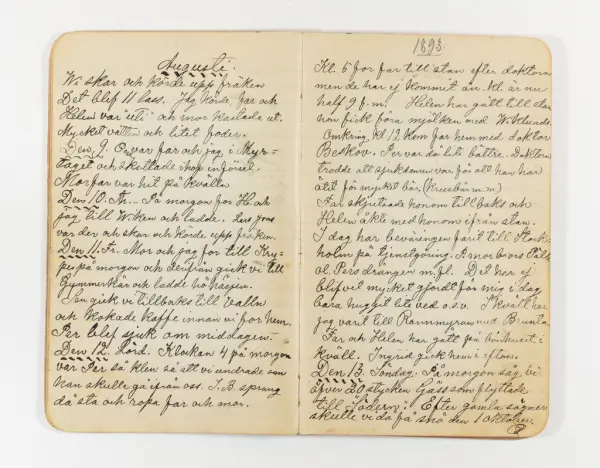 Augusti.
Vi skar och körde upp fräken
Det blef 11 lass. Jag körde, far och
Helen var uti och mor kastade ut.
Mycket vatten och litet foder.
Den 9. O. var far och jag i Myr-
taget och skottade ihop införsel.
Morfar var hit på kvällen
Den 10. Th. På morgon for H. och
jag till W.ken och ladde. Lars Jons
var der och skar och körde upp fräken.
Den 11. Fr. Mor och jag for till Kry-
pes på morgon och derifrån gick vi till
Gymmerkär och ladde höhässjen.
Sen gick vi tillbaks till Valln
och kokade kaffe innan vi for hem.
Per blef sjuk om middagen.
Den 12. Lörd. Klockan 4 på morgon
var Per så klen så att vi undrade om
han skulle gå ifrån oss. J.B. sprang
då sta och ropa far och mor.
1893.
Kl. 5 for far till stan efter doktorn
men de har ej kommit än. kl. är nu
half 9 f.m. Helen har gått till stan
hon fick föra mjölken med
Omkring kl. 12 kom far hem med doktor
Beskov. Per var då lite bättre. Doktorn
trodde att sjukdomen var för att han har
ätit för mycket bär (Krusbär m.m)
Far skjutsade honom tillbaks och
Helen åkte med honom ifrån stan.
I dag har beväringen farit till Stock-
holm på tjenstgöring. A morbrors Pålle
ol Pers drängen m.fl. Det har ej
blefvit mycket gjordt för mig i dag
bara huggit lite ved o.s.v. I kväll har
jag varit till Rammyran med Brunta.
Far och Helen har gått på bönhuset i
kväll. Ingrid gick hem i eftom.
Den 13. Söndag. På morgon såg vi
öfver 20 stycken Gäss som flyttade
till Södern: Efter gamla sägner
skulle vi då få snö den 1 Oktober.